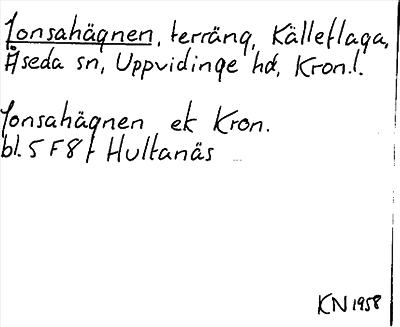 Jonsahägnen, terräng, Källeflaga,
Åseda sn, Uppvidinge hd, Kron.l.
Jonsahägnen ek Kron.
bl. 5 F 8 f Hultanäs
KN 1958